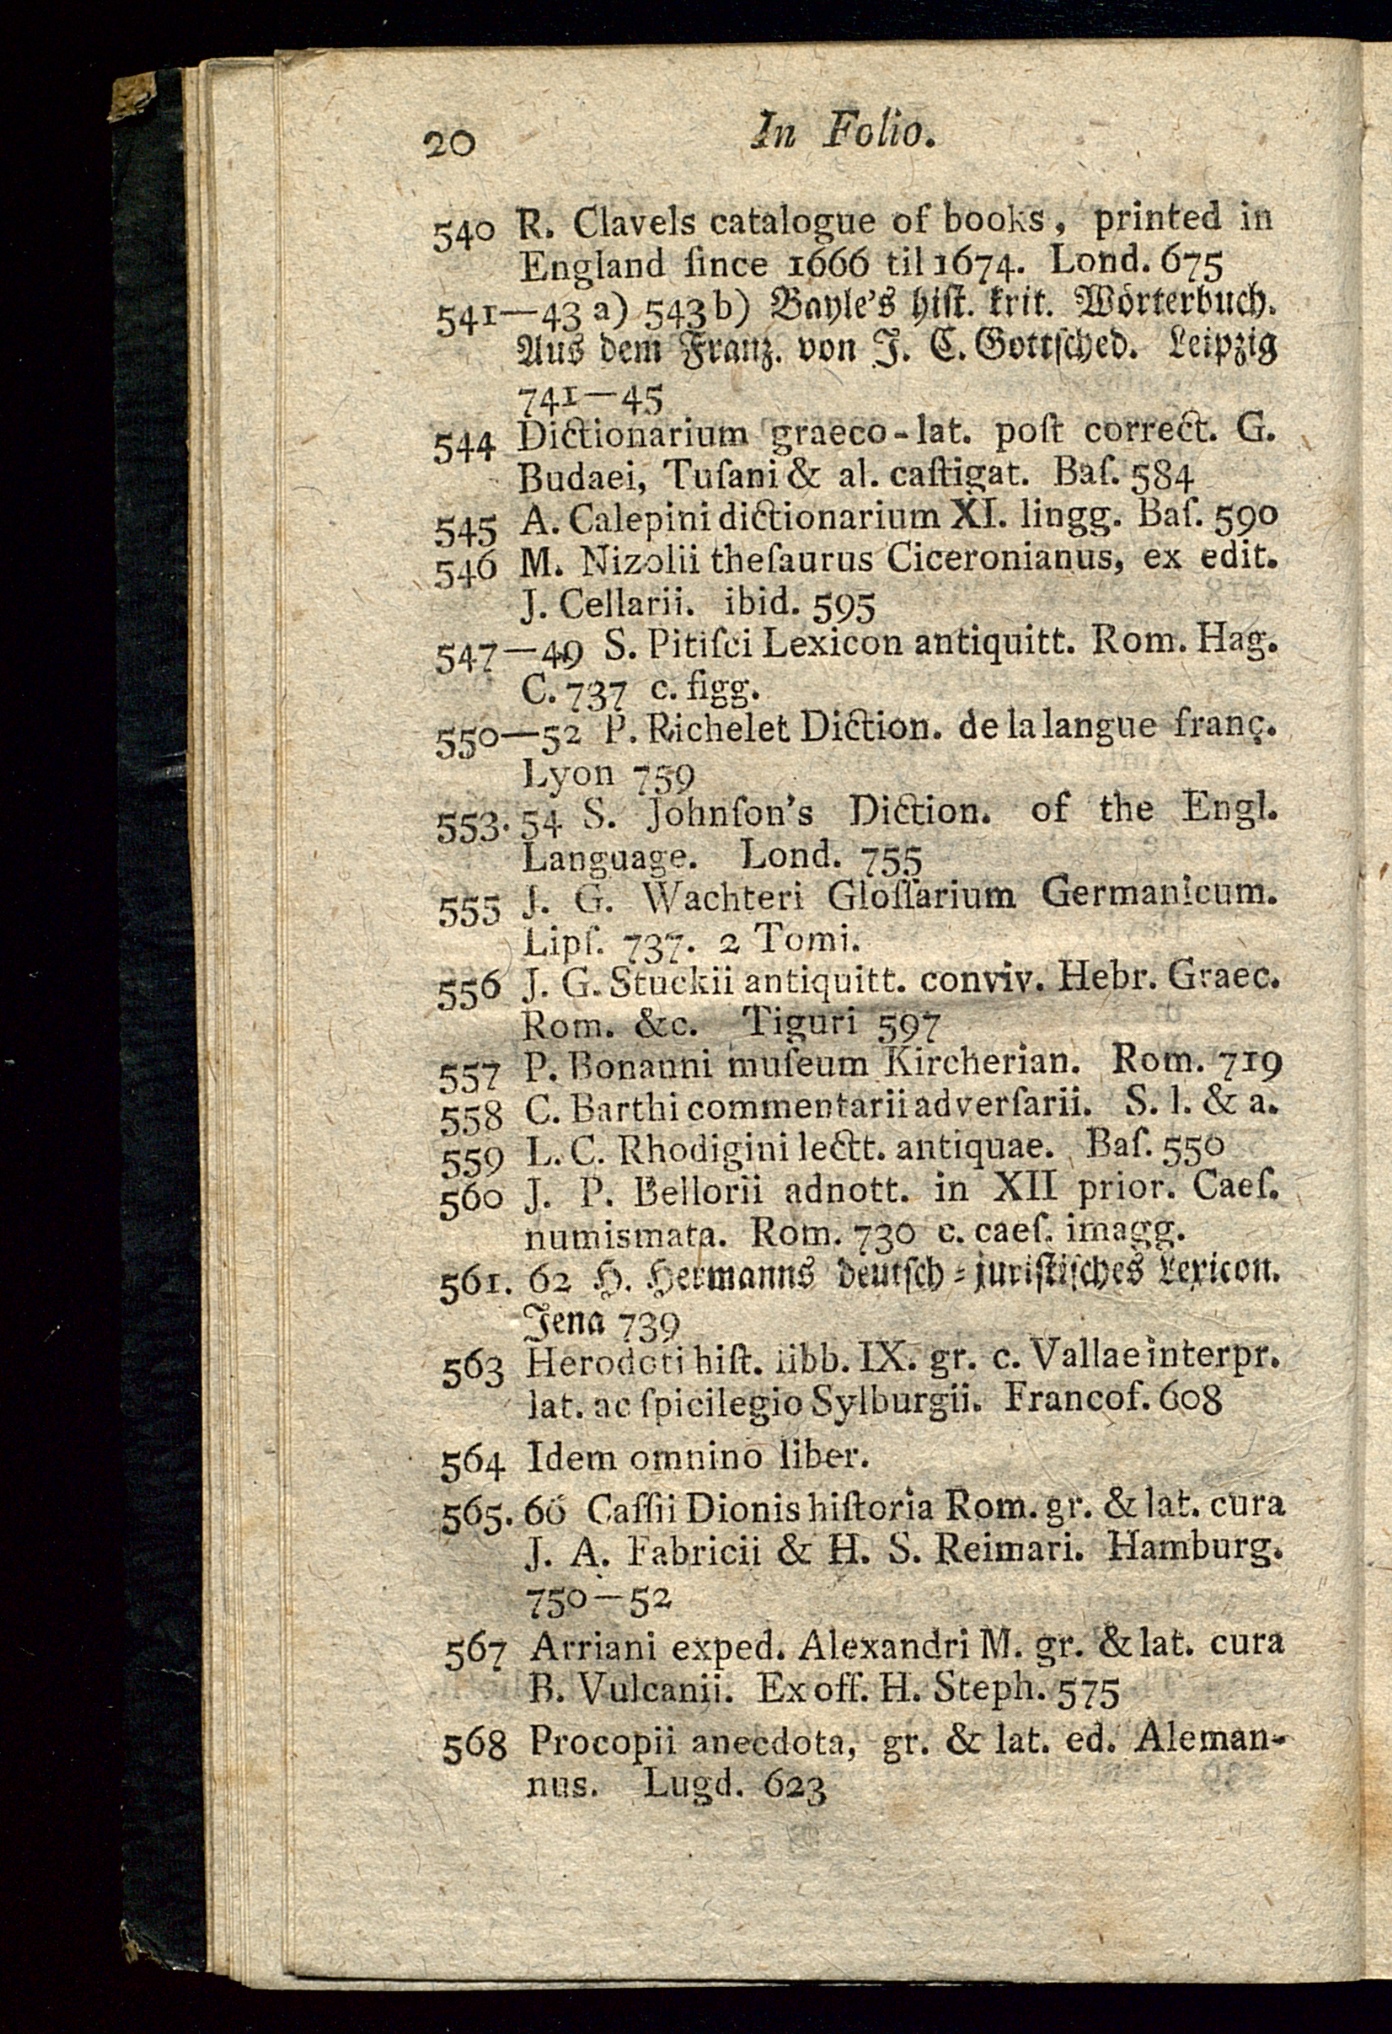 20 In Folio.
540 R. Clavels catalogue of books, printed in
England ſince 1666 til 1674. Lond. 675
541—43 a) 543 b) Bayle's hiſt. krit. Wörterbuch.
Aus dem Franz. von J. C. Gottſched. Leipzig
741—45
544 Dictionarium graeco-lat. poſt correct. G.
Budaei, Tuſani & al. caſtigat. Baſ. 584
545 A. Calepini dictionarium XI. lingg. Baſ. 590
546 M. Nizolii theſaurus Ciceronianus, ex edit.
J. Cellarii. ibid. 595
547—49 S. Pitiſci Lexicon antiquitt. Rom. Hag.
C. 737 c. figg.
550—52 P. Richelet Diction. de la langue franç.
Lyon 759
553. 54 S. Johnſon's Diction. of the Engl.
Language. Lond. 755
555 J. G. Wachteri Gloſſarium Germanicum.
Lipſ. 737. 2 Tomi.
556 J. G. Stuckii antiquitt. conviv. Hebr. Graec.
Rom. &c. Tiguri 597
557 P. Bonanni muſeum Kircherian. Rom. 719
558 C. Barthi commentarii adverſarii. S. l. & a.
559 L. C. Rhodigini lectt. antiquae. Baſ. 550
560 J. P. Bellorii adnott. in XII prior. Caeſ.
numismata. Rom. 730 c. caeſ. imagg.
561. 62 H. Hermanns deutſch-juriſtiſches Lexicon.
Jena 739
563 Herodoti hiſt. libb. IX. gr. c. Vallae interpr.
lat. ac ſpicilegio Sylburgii. Francof. 608
564 Idem omnino liber.
565. 66 Caſſii Dionis hiſtoria Rom. gr. & lat. cura
J. A. Fabricii & H. S. Reimari. Hamburg.
750—52
567 Arriani exped. Alexandri M. gr. & lat. cura
B. Vulcanii. Ex off. H. Steph. 575
568 Procopii anecdota, gr. & lat. ed. Aleman-
nus. Lugd. 623